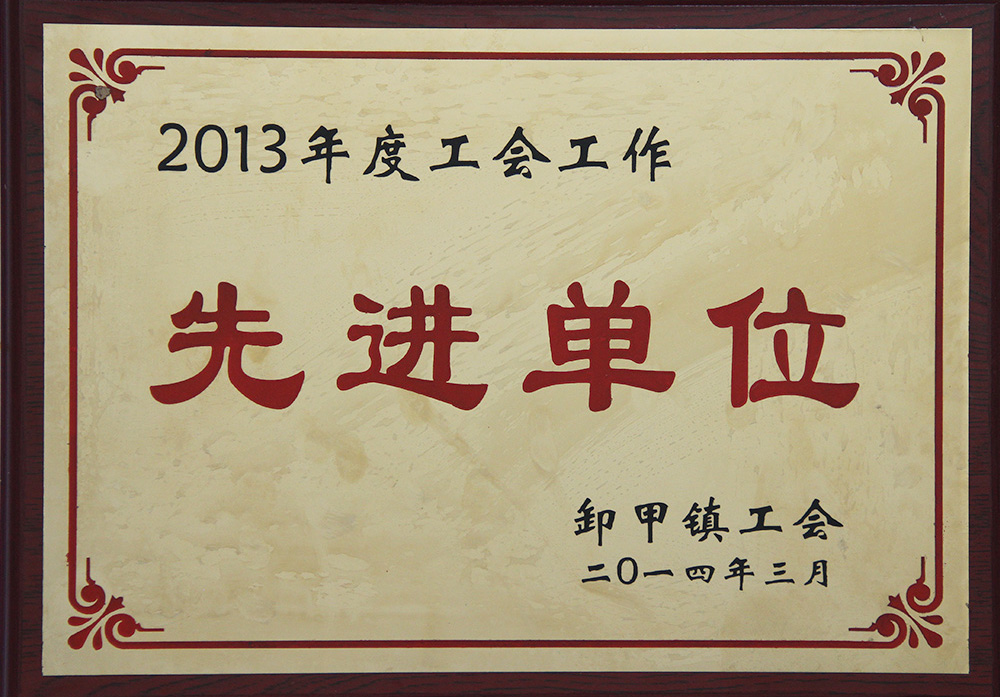 2013年度工会工作
先进单位
卸甲镇工会
二〇一四年三月